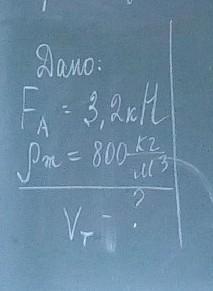 Дано:
F_A = 3,2кН
ρ_ж = 800 кг/м³
V_т = ?